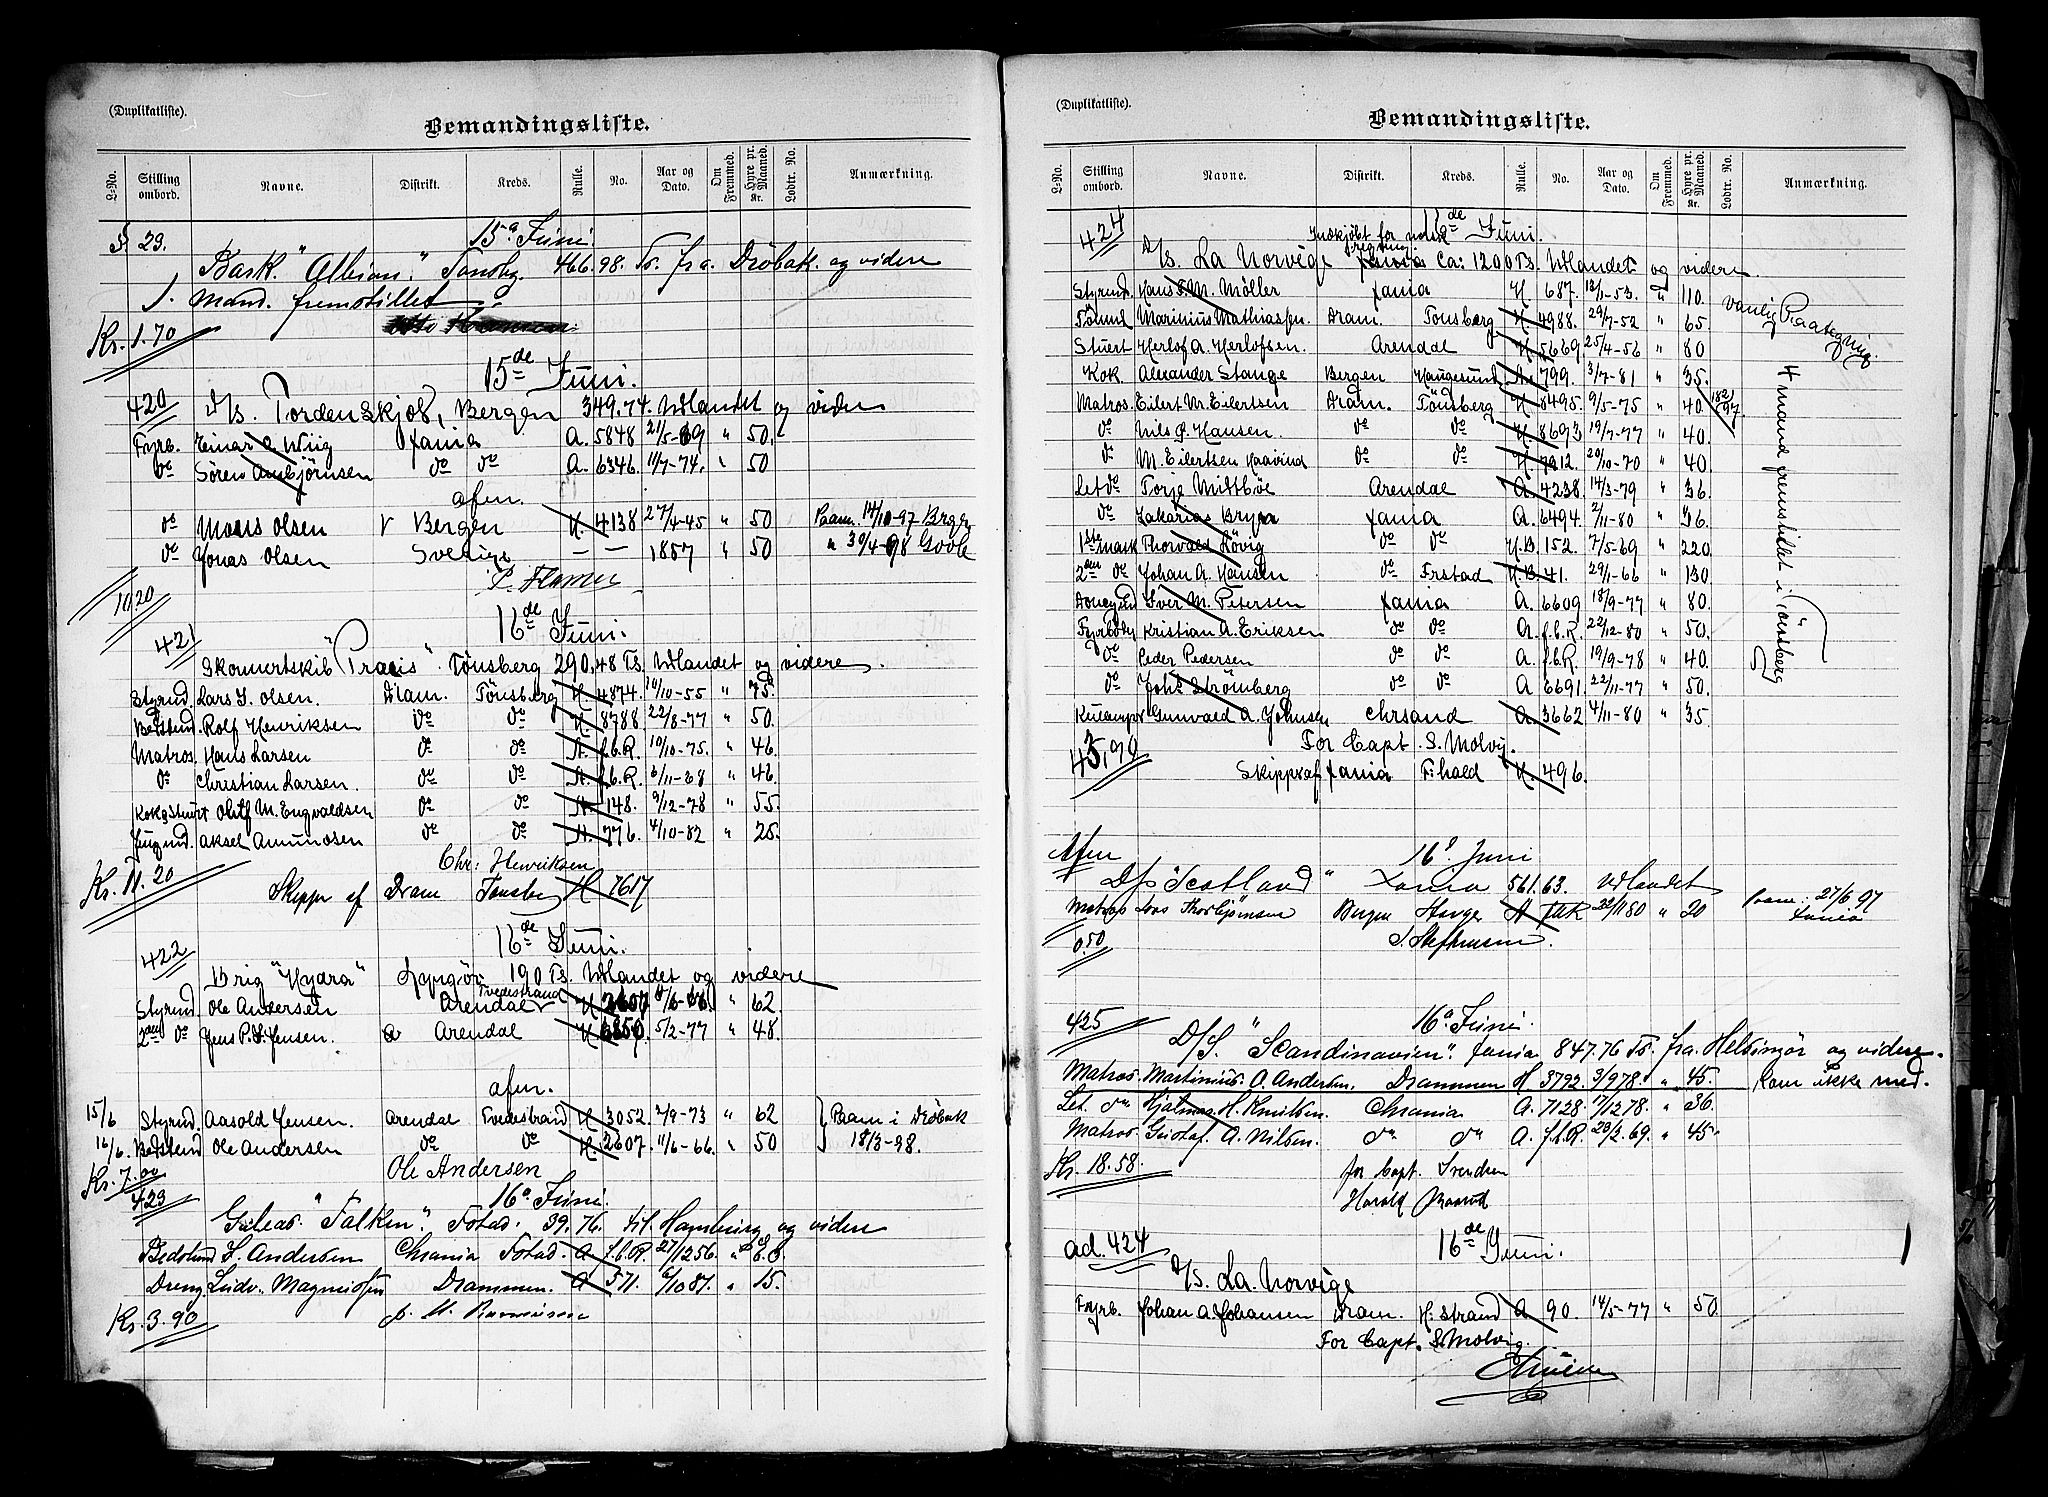 (Duplikatliste).
Bemandingsliste.
L-No. Stilling ombord. Navne. Distrikt. Kreds. Rulle. No. Aar og Dato. Om Fremmed. Hyre pr. Maaned. Kr. Lodtr. No. Anmærkning.
§ 29. 15de Juni.
Bark. "Albion." Tønsbg. 466.98. Ts. fra. Dröbak. og videre
1. Mand. fremstillet
Kr. 1.70
15de Juni.
420 D/s. Tordenskjold, Bergen 349.74. Udlandet og videre
Fyrb. Einar A. Wiig Xania A. 5848 21/5-69 " 50.
do Sören Ambjörnsen do do A. 6346. 11/7-74. " 50
afm.
do Mons Olsen V Bergen H. 4138 27/4-45 " 50 Paam. 14/10-97 Brgen
do Jonas Olsen Sverige — — 1857 " 50 " 30/4-98
10/20
16de Juni.
421 Skonnertskib "Præcis". Tönsberg 290,48 Ts. Udlandet og videre.
Styrmd. Lars J. Olsen. Dram. Tönsberg H. 4874. 10/10-55 " 75.
Bedstmd. Rolf Henriksen do do H. 8788 22/8-77 " 50.
Matros. Hans Larsen do do A. f.b.R. 19/10-75. " 46.
do Christian Larsen. do do A. f.b.R. 6/11-68 " 46
Kok & Stuert Oluf M. Engvaldsen do do A. 148. 9/12-78 " 55.
Jungmd. Aksel Amundsen do do A. 776. 4/10-82 " 25.
Kr. 11.20 Chr: Henriksen
Skipper af Dram Tønsberg H 7617
16de Juni.
422 Brig "Hydra" Lyngör. 190 Ts. Udlandet og videre
Styrmd. Ole Andersen Arendal Tvedestrand H 2607 11/6-66. " 62
2den do Jens P. S. Jensen. d Arendal H 6850. 5/2-77 " 48.
afm.
15/6 Styrmd. Aasold Jensen. Arendal Tvedestrand H. 3052. 2/9-73 " 62 } Paam i Dröbak
16/6. Bedstemd Ole Andersen do do H. 2607. 11/6-66. " 50 18/3-98.
Kr. 7.00 Ole Andersen
423 16de Juni.
Galeas. "Falken". Fstad. 39.76. til. Hamburg og videre
Bedstmd S. Andersen Chrania Fstad. A f.b.R. 27/12 56. "
Dreng Ludv. Magnussen Drammen. A 571. 6/10 81. " 15.
Kr. 3.90
(Duplikatliste).
Bemandingsliste.
L-No. Stilling ombord. Navne. Distrikt. Kreds. Rulle. No. Aar og Dato. Om Fremmed. Hyre pr. Maaned. Kr. Lodtr. No. Anmærkning.
424 Indkjöbt for norsk regning. Juni.
D/s. La Norvège Ca: 1200 Ts. Udlandet og videre
Styrmd. Hans F. M. Möller Xania H 687. 13/1-53. " 110. Vanlig Paategning.
Marinius Mathiassen Dram. Tönsberg H 4988. 29/7-52 " 65.
Stuert Herlof A. Herlofsen. Arendal H. 5669 25/4-56 " 80
Kok. Alexander Stange Bergen Haugesund A. 799. 3/7-81 " 35.
Matros. Eilert M. Eilertsen Dram. Tönsberg H 8495. 9/5-75 " 40. 182/97
do Nils P. Hansen. do do H. 8693 19/7-77 " 40.
do M. Eilertsen Haavind do do H. 7912. 20/10-70 " 40
Let do Torje Midtböe Arendal A. 4238. 14/3-79 " 36.
do Zakarias Bryn Xania A. 6494. 2/11-80 " 36.
1ste Mask Thorvald Hövig do do H.B. 152. 7/5-69 " 220
2den do Johan A. Hansen do Frstad H.B. 41. 29/11-66 " 130
Donkymd Iver M. Petersen Xania A. 6609 18/9-77 " 80.
Fyrböd. Kristian A. Eriksen do do A. f.b.R. 22/12-80 " 50.
do Peder Pedersen do do A. f.b.R. 19/9-78 " 40.
do Johs Strömberg do do A 6691. 22/11-77 " 50.
Kullemper Gunvald A. Johnsen Chrsand A. 3662 4/11-80 " 35.
4 mand fremstillet i Tönsberg
43,90 For Capt. S. Molvig.
Skipper af Xania F:hald H. 496.
Afm 16de Juni
D/s "Scotland" Xania 561.63. Udlandet
Matros Lars Thorbjörnsen Bergen A " 20 Paam. 27/6 97 Xania
0.50
425 16de Juni.
D/S. "Scandinavien". Xania 847.76 Ts. fra. Helsingör og videre.
Matros. Martinius. O. Andersen. Drammen H 3792. 3/9 78. " 45. kom ikke med.
Let. do Hjalmar H. Knudsen. Chrania A. 7128. 17/12 78. " 36.
Matros. Gustaf. A. Nilsen. do do A. f.b.R. 28/2. 69. " 45.
Kr. 18.58. for Capt. Svendsen
Harald
ad. 424 16de Juni.
D/s. La Norvège
Fyrb. Johan A. Johansen Dram. H:strand A 90. 14/5-77 " 50.
For Capt. S. Molvig.